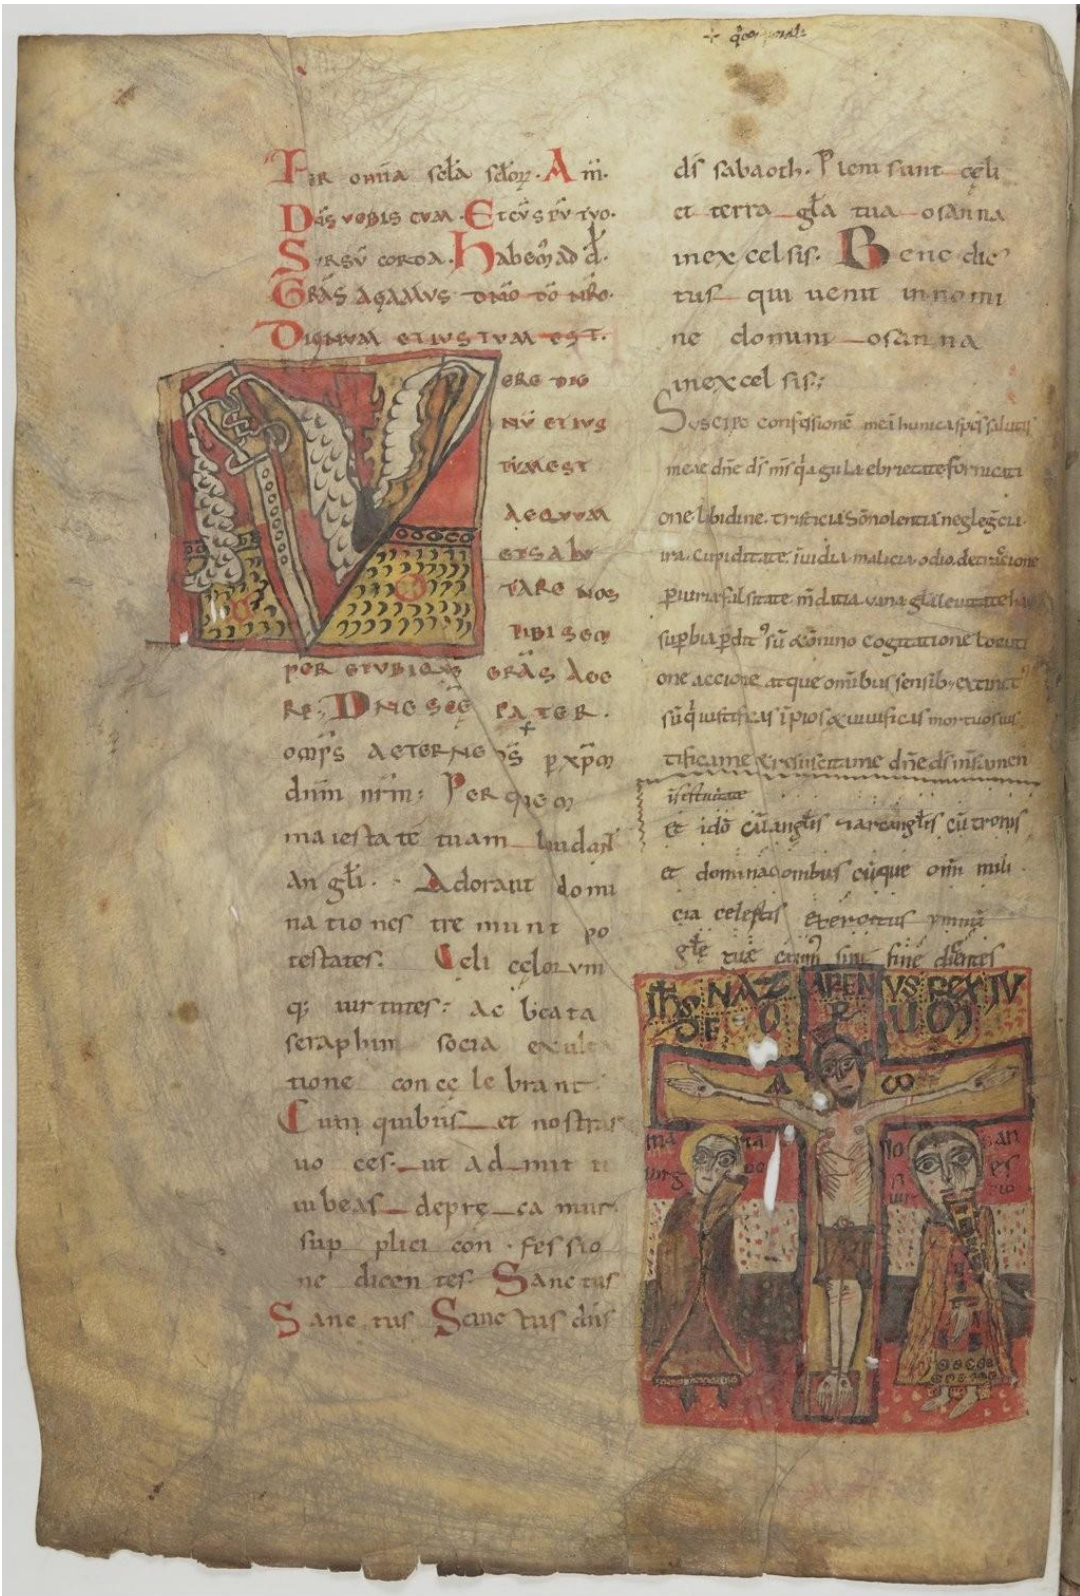 Per omia scła scłorꝝ. Am̅.
Dn̅s vobis cum. Et cu̅ spu̅ tuo.
Sursu̅ corda. Habem̅ ad d̅.
Gra̅s agamus dn̅o do̅ nr̅o.
Dignum et iustum est.
ere dig
nu̅ et ius
tu̅m est
aequum
et salu
tare nos
tibi sem
per et ubique gra̅s age
re. Dn̅e sc̅e pater.
omp̅s aeterne ds̅ p xp̅m
dn̅m nr̅m: Per quem
maiestate̅ tuam laudant
angłi. Adorant domi
nationes tremunt po
testates: Celi celorum
q; uirtutes: ac beata
seraphin socia exul
tione concelebrant
Cum quibus et nostras
uoces. ut admit ti
iubeas deprecamur
supplici confessio
ne dicentes Sanctus
Sanctus Sanctus dn̅s
ds̅ sabaoth. Pleni sunt cęli
et terra gła tua osanna
in excelsis. Benedic
tus qui uenit in nomi
ne domini osanna
in excelsis:
Suscipe confessione̅ mea̅ hunica spes salutis
meae dn̅e ds̅ ms̅ q̅a gula ebrietate fornicati
one libidine. tristicia so̅nolentia neglege̅cia.
ira. cupiditate. i̅uidia malicia. odio. detractione
periuria falsitate. uana gła leuitate
superbia perdit⁹ su̅ & om̅nino cogitatione locuti
one accione atque omnibus sensib; extinct⁹
su̅ q̅ iustificas i̅pios & uiuificas mortuos ius
tifica me & resuscita me dn̅e ds̅ ms̅ amen
Et ido̅ cu̅ angłis & arcangłis cu̅ tronis
et dominacionibus cu̅que om̅i mili
cia celestis exercitus ymnu̅
głe tue canim⁹ sine fine dicentes
Ih̅s NAZARENUS REX IU
DEORUOM
A ω
ma ria
uirg o
io an
es